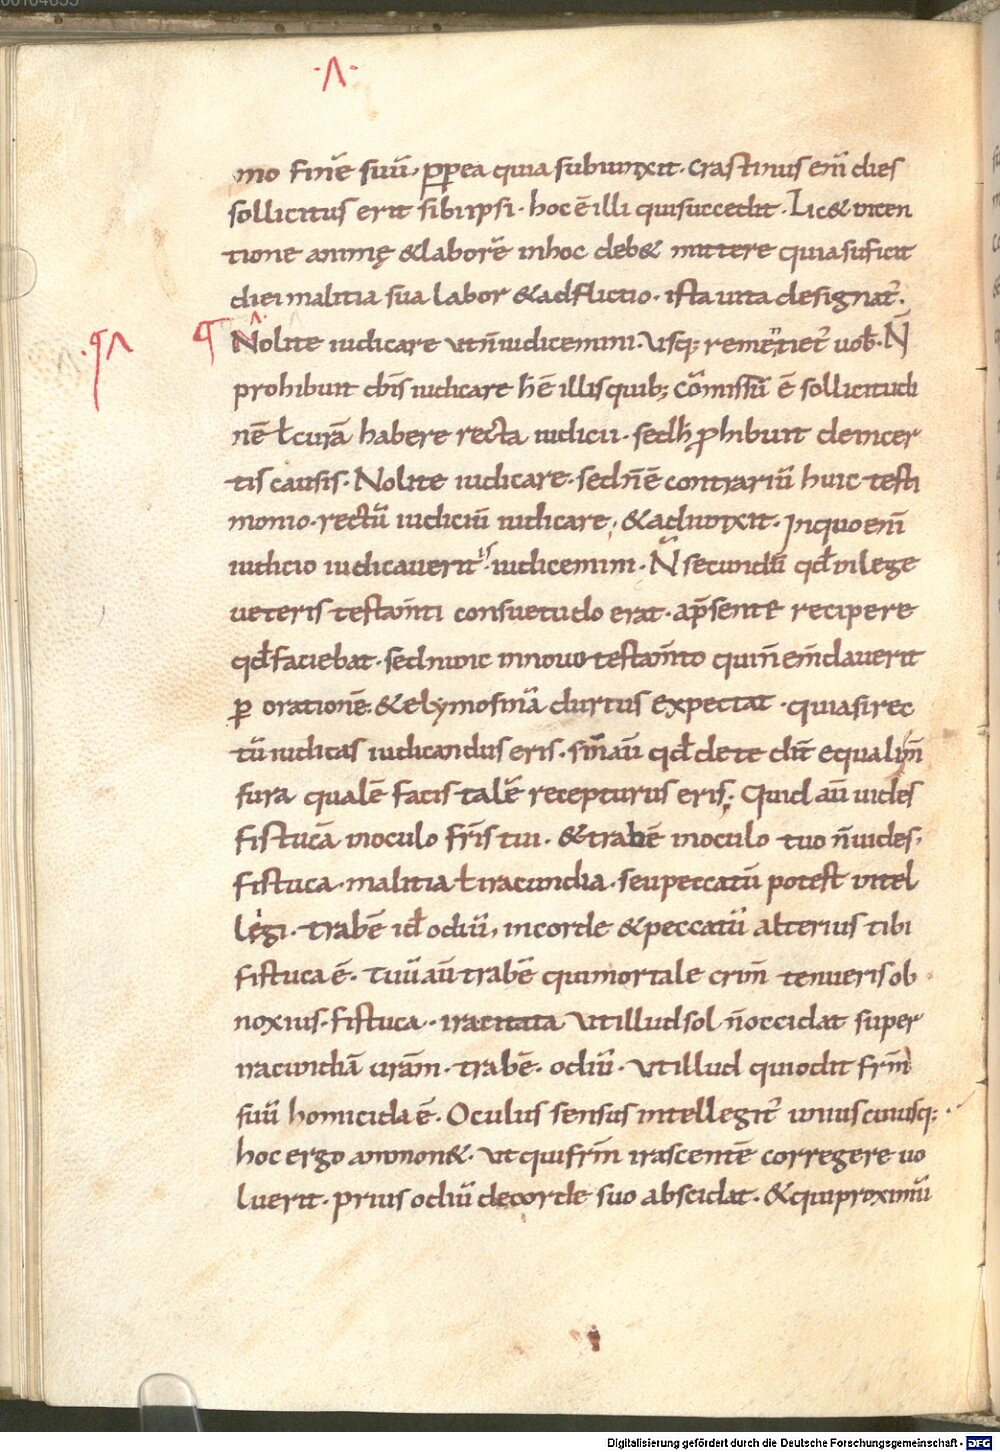 ·Λ·
mo finē suū, pp ea quia subiunxit. Crastinus eni dies
sollicitus erit sibi ipsi. hoc ē illi qui succedit. Lic& inten
tione animę & laborē in hoc deb& mittere quia suficit
diei malitia sua labor & adflictio. ista uita designat̄.
Nolite iudicare ut n̄ iudicemini. Usq; remetiet̄ uob̄. N̄
prohibuit dn̄s iudicare h̄ ē illis quib; cōmissū ē sollicitudi
nē ł curā habere recta iudicii. sed h̄ ꝓhibuit de incer
tis causis. Nolite iudicare. sed n̄ ē contrariū huic testi
monio. rectū iudiciū iudicare, & adiunxit. In quo eni
iudicio iudicauerit is. iudicemini. N̄ secundū qd̄ in lege
ueteris testam̄ti consuetudo erat. a p̄sente recipere
qd̄ faciebat. sed nunc in nouo testam̄to qui n̄ em̄dauerit
ꝑ orationē. & elymosinā durius expectat. quia si rec
tū iudicas iudicandus eris. sin aū qd̄ de te dn̄t equali m̄
sura qualē facis talē recepturus eris; Quid aū uides
fistucā in oculo fr̄is tui. & trabē in oculo tuo n̄ uides.
fistuca. malitia ł iracundia. seu peccatū potest intel
legi. trabē id̄ odiū, in corde & peccatū alterius tibi
fistuca ē. tuū aū trabē qui mortale crim̄ tenueris ob
noxius. fistuca. iracitata ut illud sol n̄ occidat super
iracundiā uram̄. trabē. odiū. ut illud qui odit frm̄
suū homicida ē. Oculus sensus intellegit̄ unius cuiusq;.
hoc ergo ammon&. ut qui frm̄ irascentē corregere uo
luerit. prius odiū de corde suo abscidat. & qui proximū
Digitalisierung gefördert durch die Deutsche Forschungsgemeinschaft - DFG